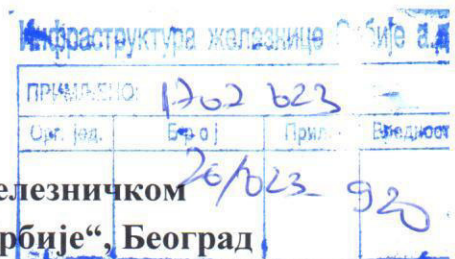 Инфраструктура железнице Србије а.д
ПРИМЉЕНО: 1702 2023
Орг. јед. Број Прил. Вредност
26/2023- 920
елезничком
рбије“, Београд